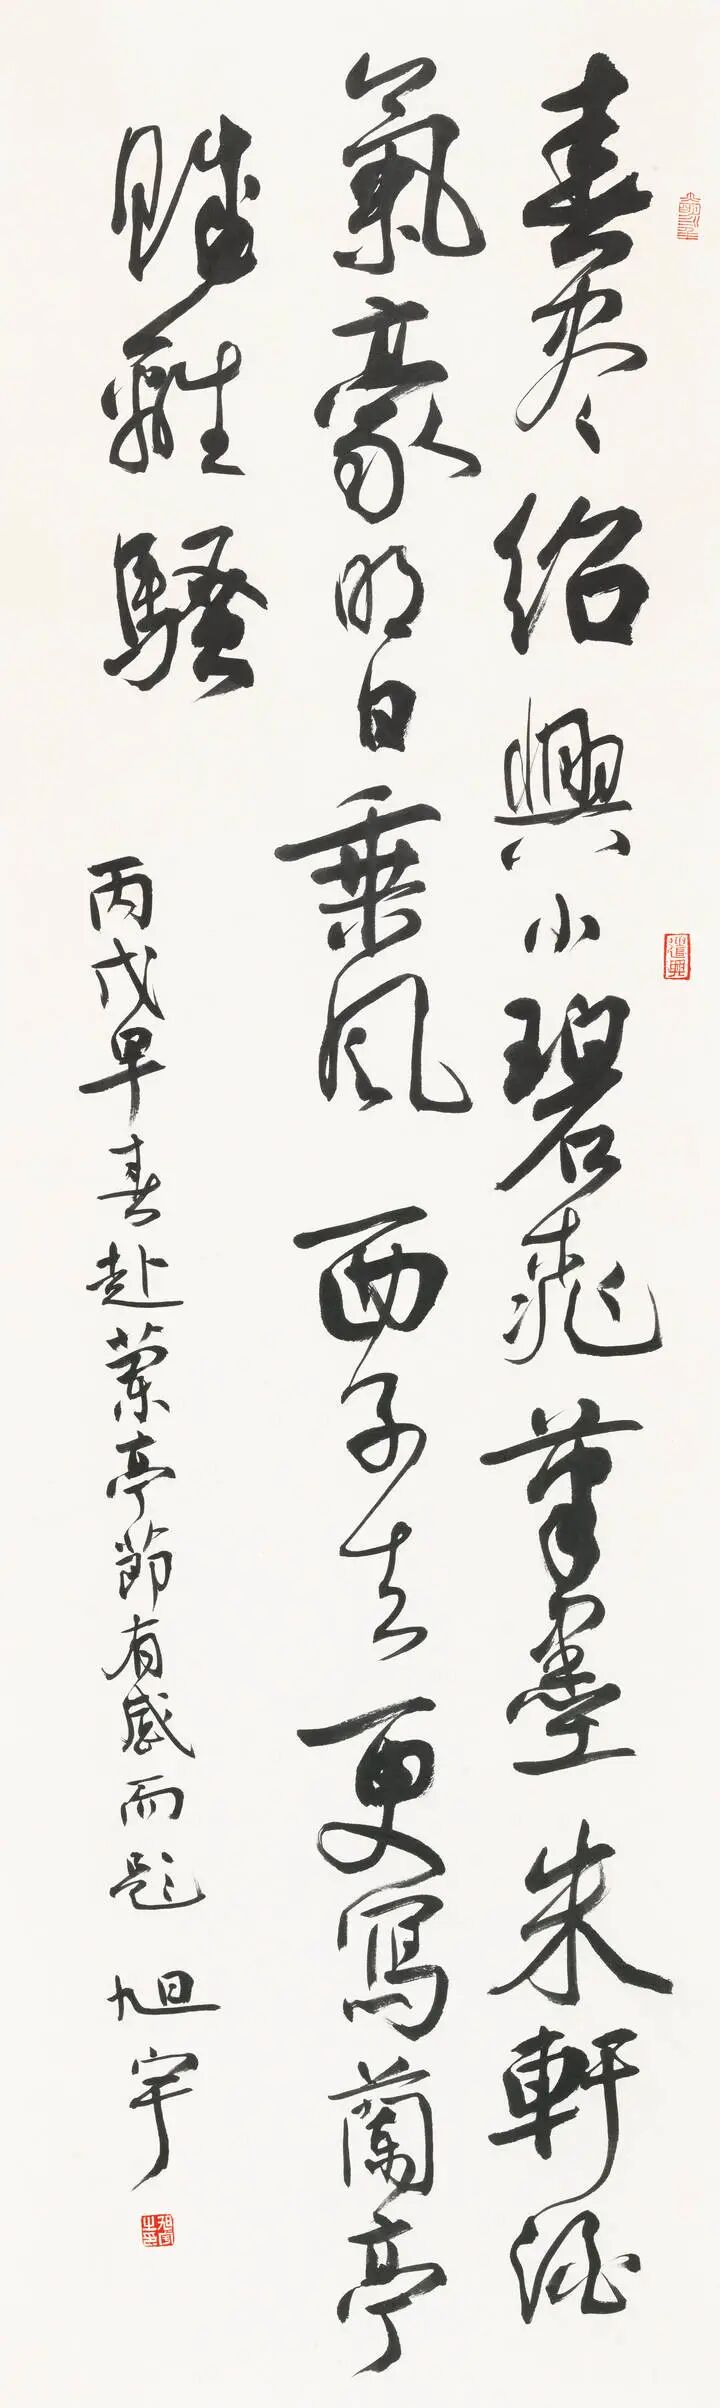 春寒紹興小碧桃筆墨朱軒酒
氣豪明日乘風西子去更寫蘭亭
賦離騷
丙戌早春赴蘭亭節有感而題 旭宇